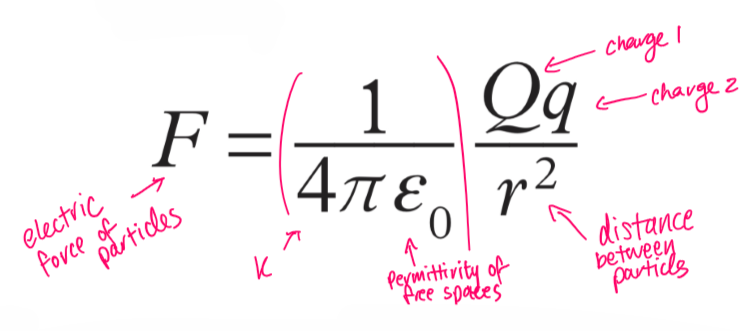 charge 1
charge 2
F = (1/4πε₀) Qq/r²
electric
force of
particles
K
permittivity of
free spaces
distance
between
particles